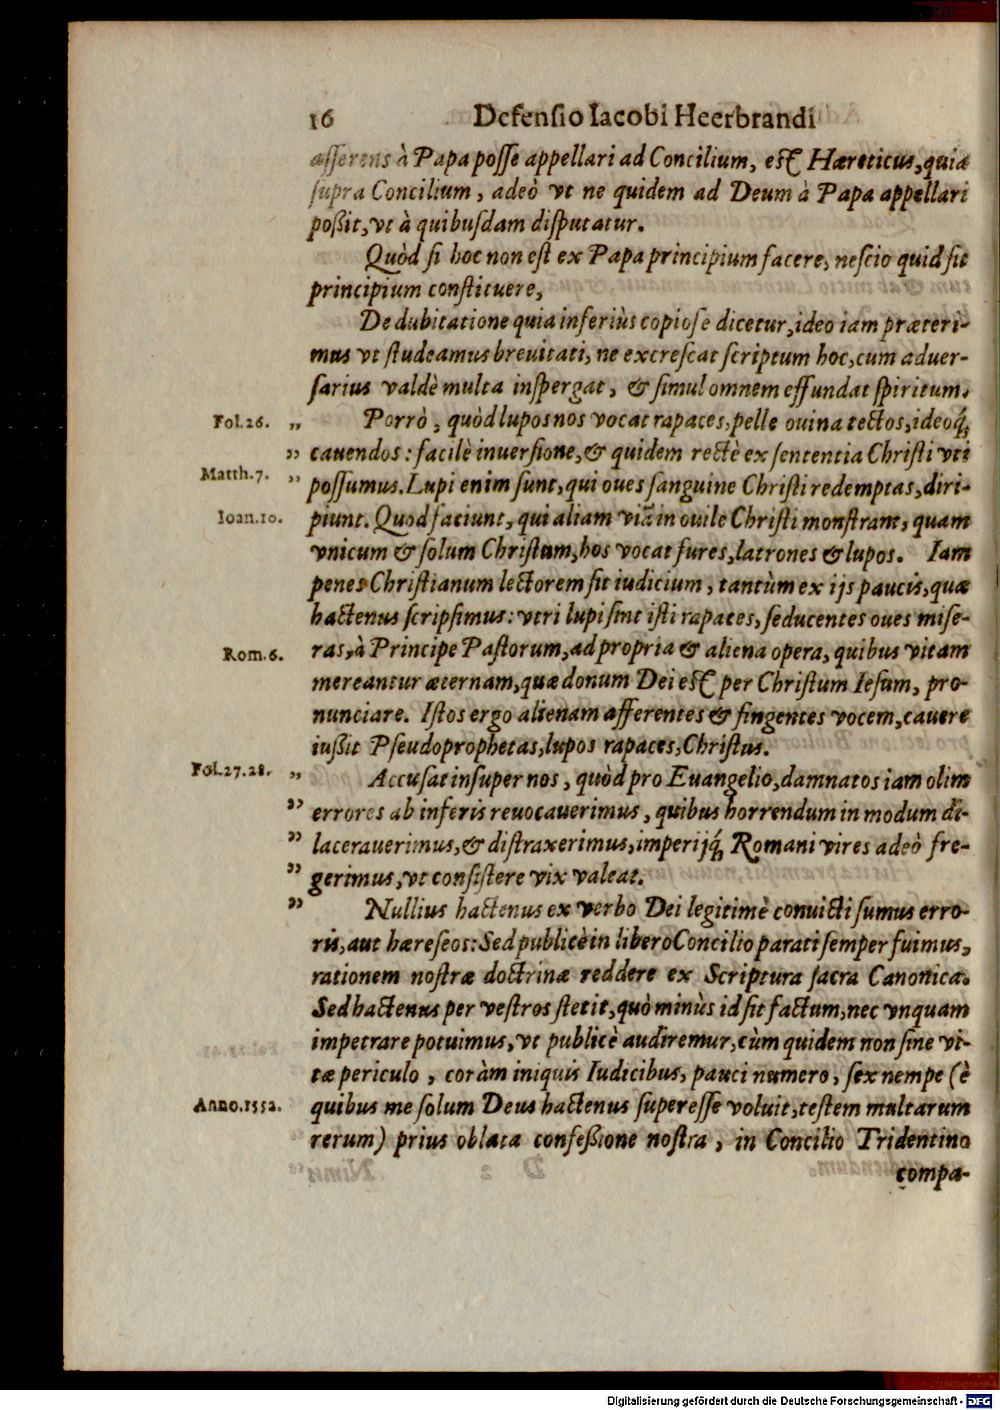 16 Defensio Iacobi Heerbrandi
asserens à Papa posse appellari ad Concilium, est Hæreticus, quia
supra Concilium, adeò vt ne quidem ad Deum à Papa appellari
poßit, vt à quibusdam disputatur.
Quòd si hoc non est ex Papa principium facere, nescio quid sit
principium constituere,
De dubitatione quia inferiùs copiose dicetur, ideo iam præteri-
mus vt studeamus breuitati, ne excrescat scriptum hoc, cum aduer-
sarius valdè multa inspergat, & simul omnem effundat spiritum.
Fol.26. „ Porrò, quòd lupos nos vocat rapaces, pelle ouina tectos, ideoq́;
„ cauendos: facilè inuersione, & quidem rectè ex sententia Christi vti
Matth.7. „ possumus. Lupi enim sunt, qui oues sanguine Christi redemptas, diri-
Ioan.10. piunt. Quod faciunt, qui aliam viã in ouile Christi monstrant, quam
vnicum & solum Christum, hos vocat fures, latrones & lupos. Iam
penes Christianum lectorem sit iudicium, tantùm ex ijs paucis, quæ
hactenus scripsimus: vtri lupi sint isti rapaces, seducentes oues mise-
Rom.6. ras, à Principe Pastorum, ad propria & aliena opera, quibus vitam
mereantur æternam, quæ donum Dei est per Christum Iesum, pro-
nunciare. Istos ergo alienam afferentes & fingentes vocem, cauere
iußit Pseudoprophetas, lupos rapaces, Christus.
Fol.27.28. „ Accusat insuper nos, quòd pro Euangelio, damnatos iam olim
„ errores ab inferis reuocauerimus, quibus horrendum in modum di-
„ lacerauerimus, & distraxerimus, imperijq́; Romani vires adeò fre-
„ gerimus, vt consistere vix valeat.
„ Nullius hactenus ex verbo Dei legitimè conuicti sumus erro-
ris, aut hæreseos: Sed publicè in libero Concilio parati semper fuimus,
rationem nostræ doctrinæ reddere ex Scriptura sacra Canonica.
Sed hactenus per vestros stetit, quò minùs id sit factum, nec vnquam
impetrare potuimus, vt publicè audiremur, cùm quidem non sine vi-
tæ periculo, coràm iniquis Iudicibus, pauci numero, sex nempe (è
Anno.1552. quibus me solum Deus hactenus superesse voluit, testem multarum
rerum) prius oblata confeßione nostra, in Concilio Tridentino
compa-
Digitalisierung gefördert durch die Deutsche Forschungsgemeinschaft - DFG